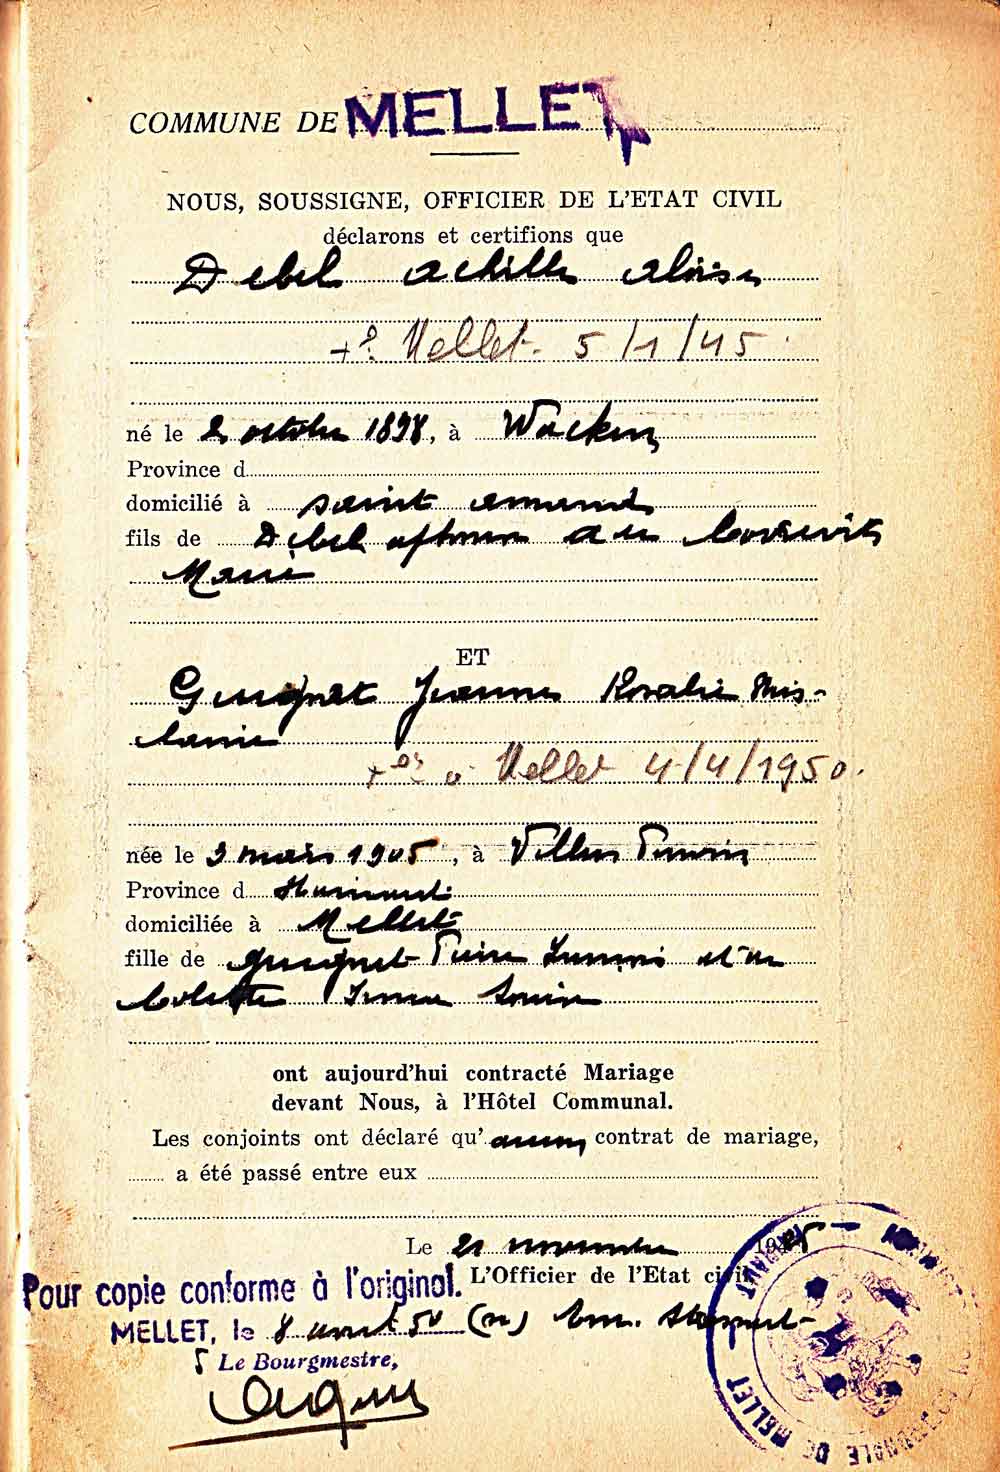 COMMUNE DE MELLET
NOUS, SOUSSIGNE, OFFICIER DE L'ETAT CIVIL
déclarons et certifions que
Debel Achille Aloïse
Mellet 5/1/45
né le 2 octobre 1898, à Wacken
Province d
domicilié à Saint Amand
fils de Debel
Marie
ET
Guignet Jeanne Rosalie
à Mellet 4/4/1950.
née le mars 1905, à Villers
Province d Hainaut
domiciliée à Mellet
fille de Guignet
Colette Irma
ont aujourd'hui contracté Mariage
devant Nous, à l'Hôtel Communal.
Les conjoints ont déclaré qu'aucun contrat de mariage,
a été passé entre eux
Le 21 novembre 19
L'Officier de l'Etat civil
Pour copie conforme à l'original.
MELLET, le 8 avril 50 (n) Em.
Le Bourgmestre,
HAINAUT
MELLET